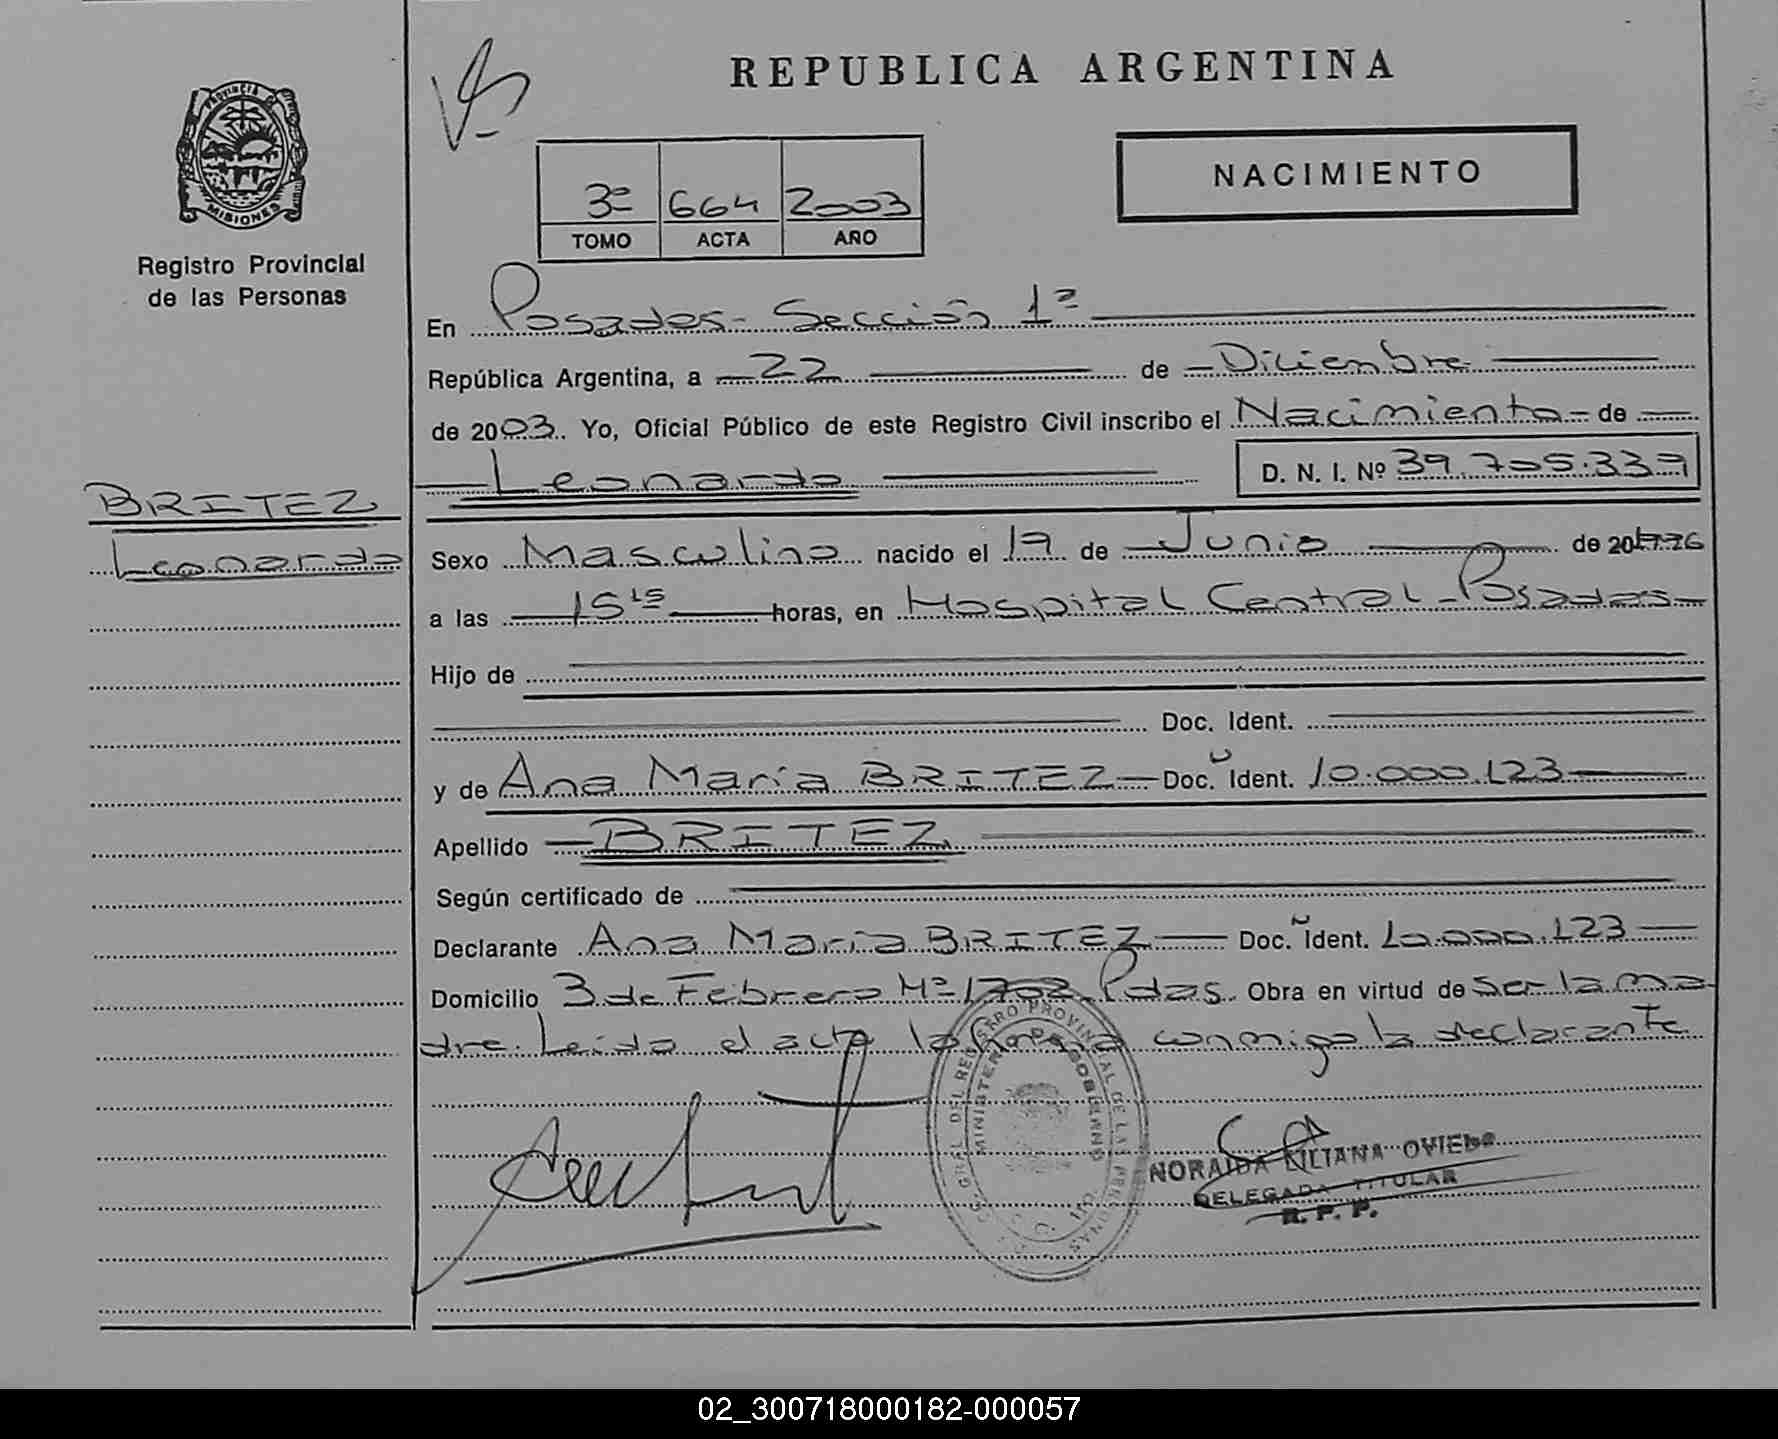 REPUBLICA ARGENTINA
PROVINCIA DE
MISIONES
Registro Provincial
de las Personas
NACIMIENTO
3º 664 2003
TOMO ACTA AÑO
En Posadas - Sección 1ª
República Argentina, a - 22 de - Diciembre
de 2003. Yo, Oficial Público de este Registro Civil inscribo el Nacimiento - de
Leonardo D. N. I. Nº 39.705.339
BRITEZ
Leonardo
Sexo Masculino nacido el 19 de Junio de
a las 15 15 horas, en Hospital Central - Posadas -
Hijo de
Doc. Ident.
y de Ana María BRITEZ - Doc. Ident. 10.000.123
Apellido - BRITEZ
Según certificado de
Declarante Ana María BRITEZ - Doc. Ident. 10.000.123 -
Domicilio 3 de Febrero Nº 1702 Pdas. Obra en virtud de ser la ma
dre. Leida el acta la firma conmigo la declarante
GRAL DEL REGISTRO PROVINCIAL DE LAS PERSONAS
MINISTERIO DE GOBIERNO
NORAIDA LILIANA OVIEDO
DELEGADA TITULAR
R. P. P.
02_300718000182-000057